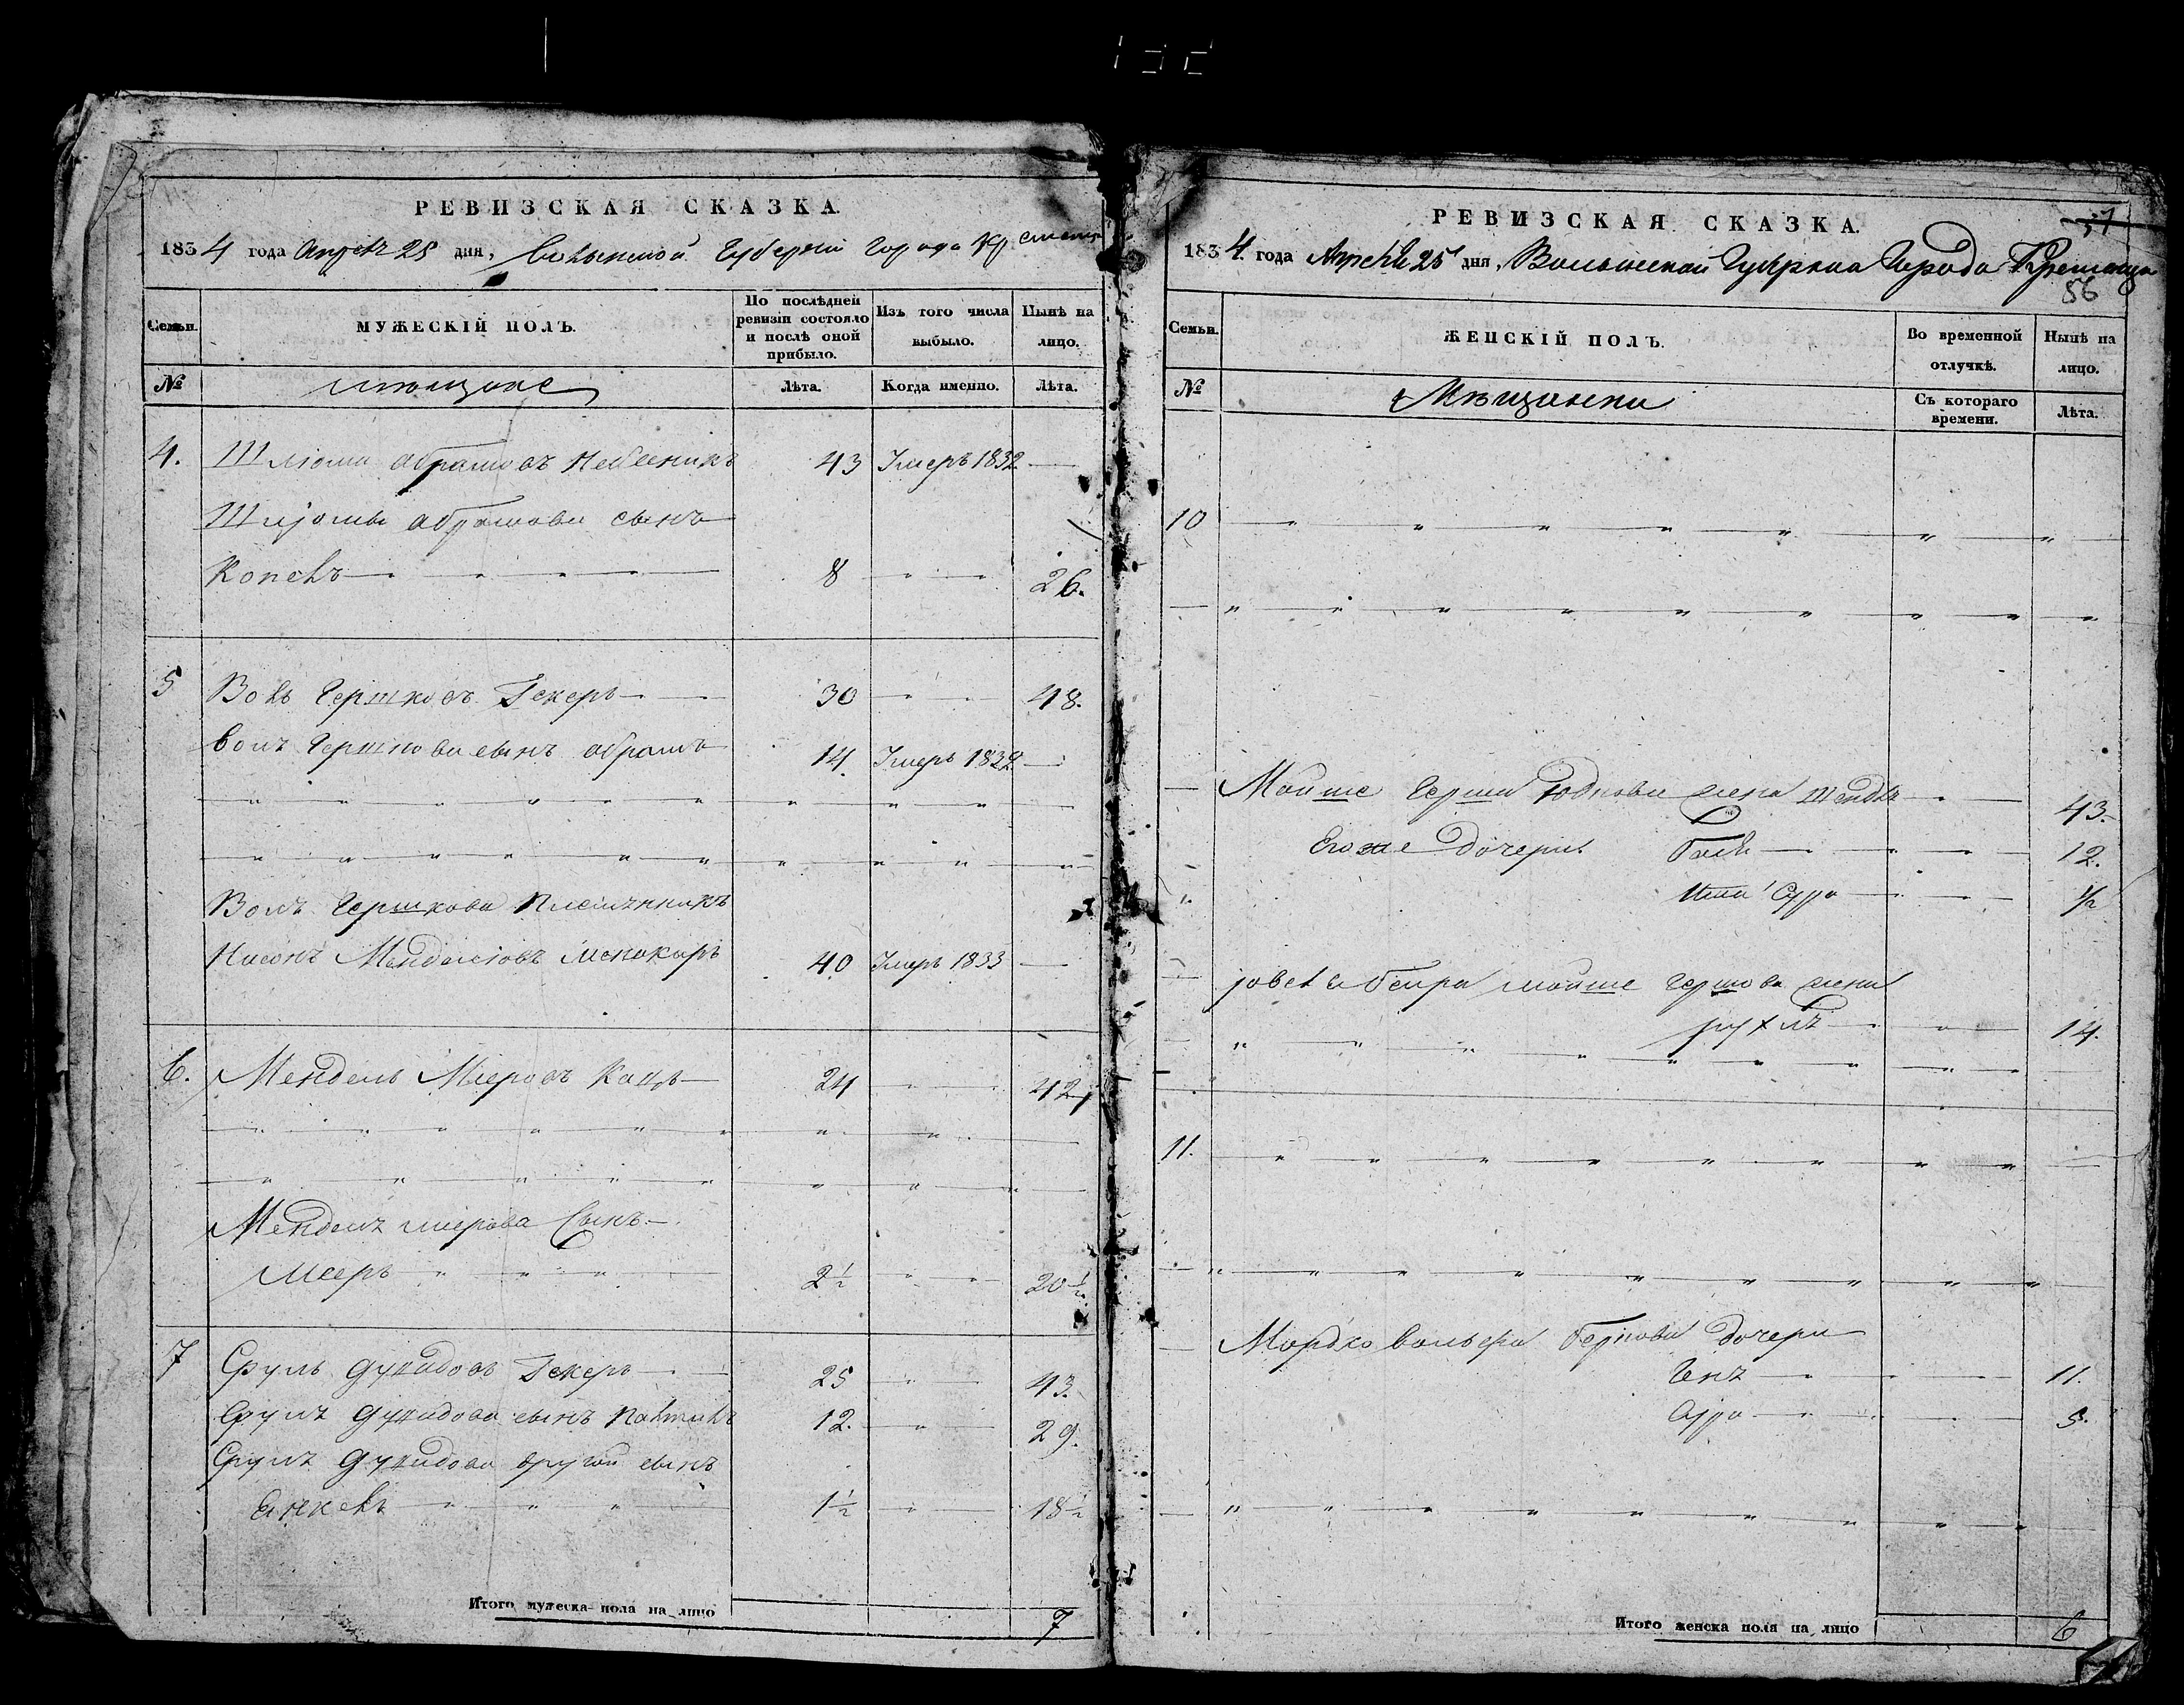 РЕВИЗСКАЯ СКАЗКА.
1834 года Апреля 25 дня, Волынской Губернии Города Кременца
Семьи. МУЖЕСКІЙ ПОЛЪ. По послѣдней ревизіи состояло и послѣ оной прибыло. Изъ того числа выбыло. Нынѣ на лицо.
№ мѣщане Лѣта. Когда именно. Лѣта.
4. Шліома Абрамовъ 43 Умеръ 1832 —
Шліомы Абрамова сынъ
Копель 8 26.
5 Волъ Гершковъ Гекеръ 30 48.
Волъ Гершкова сынъ Абрамъ 14. Умеръ 1832 —
Волъ Гершкова Племянникъ
Нисонъ Менделіовъ 40 Умеръ 1833 —
6. Мендель Міеровъ Кацъ 24 42
Мендель міерова Сынъ
Мееръ 2½ 20½
7 Сруль Дувидовъ Гекеръ 25 43.
Срулъ Дувидова сынъ 12. 29.
Срулъ Дувидова другой сынъ
Янкель 1½ 18½
Итого мужеска пола на лицо 7
РЕВИЗСКАЯ СКАЗКА.
57
1834 года Апреля 25 дня, Волынской Губерніи Города Кременца
56
Семьи. ЖЕНСКІЙ ПОЛЪ. Во временной отлучкѣ. Нынѣ на лицо.
№ Мѣщанки Съ котораго времени. Лѣта.
10
Мойше Герша Юдкова жена Шендль 43.
Егоже дочери Бася 12.
Сура ½
мойше Гершова жена
Рухлъ 14.
11.
Мордко Вольфа Берковы дочери
Генъ 11.
Сура 5.
Итого женска пола на лицо 6